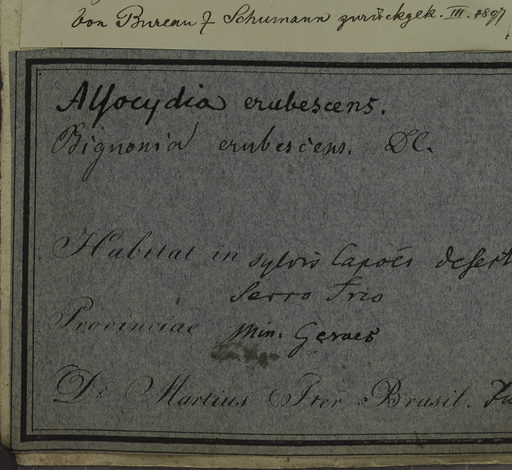 von Bureau & Schumann zurückgek. III. 1897
Alsocydia erubescens.
Bignonia erubescens. DC.
Habitat in sylvis Capoës desert
Serro Frio
Provinciae Min. Geraes
Dr. Martius Iter Brasil.